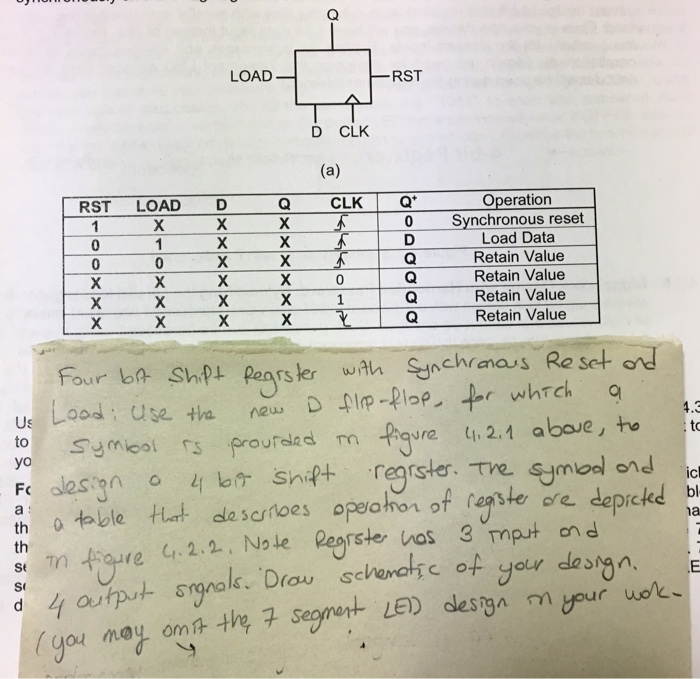 Q
LOAD RST
D CLK
(a)
RST LOAD D Q CLK Q+ Operation
1 X X X 0 Synchronous reset
0 1 X X D Load Data
0 0 X X Q Retain Value
X X X X 0 Q Retain Value
X X X X 1 Q Retain Value
X X X X Q Retain Value
Four bit Shift Register with Synchronous Reset and
Load: Use the new D flip-flop, for which a
Symbol is provided in figure 4.2.1 above, to
design a 4 bit shift register. The symbol and
a table that describes operation of register are depicted
in figure 4.2.2. Note Register has 3 input and
4 output signals. Draw schematic of your design.
(you may omit the 7 segment LED design in your wok-